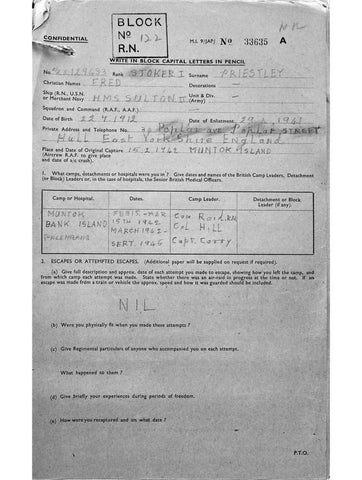 BLOCK
No 122
R.N.
NR
CONFIDENTIAL
M.I. 9/JAP/ No 33635 A
WRITE IN BLOCK CAPITAL LETTERS IN PENCIL
No. Rank STOKER I Surname PRIESTLEY
Christian Names FRED Decorations —
Ship (R.N., U.S.N. or Merchant Navy) H.M.S. SULTON II Unit & Div. (Army) —
Squadron and Command (R.A.F., A.A.F.) —
Date of Birth 22 7 1912 Date of Enlistment 29 1 1941
Private Address and Telephone No. Poplar STREET
Hull East Yorkshire England
Place and Date of Original Capture 15 2 1942 MUNTOK ISLAND
(Aircrew R.A.F. to give place
and date of a/c crash).
1. What camps, detachments or hospitals were you in? Give dates and names of the British Camp Leaders, Detachment
(or Block) Leaders or, in the case of hospitals, the Senior British Medical Officers.
Camp or Hospital. Dates. Camp Leader. Detachment or Block
Leader (if any).
MUNTOK FEB 15-MAR Com Reid RN
BANK ISLAND 15TH 1942 Col Hill
MARCH 1942- Capt.
SEPT. 1945
2. ESCAPES OR ATTEMPTED ESCAPES. (Additional paper will be supplied on request if required).
(a) Give full description and approx. date of each attempt you made to escape, showing how you left the camp, and
from which camp each attempt was made. State whether there was an air-raid in progress at the time or not. If an
escape was made from a train or vehicle the approx. speed and how it was guarded should be included.
NIL
(b) Were you physically fit when you made these attempts ?
(c) Give Regimental particulars of anyone who accompanied you on each attempt.
What happened to them ?
(d) Give briefly your experiences during periods of freedom.
(e) How were you recaptured and on what date ?
P.T.O.